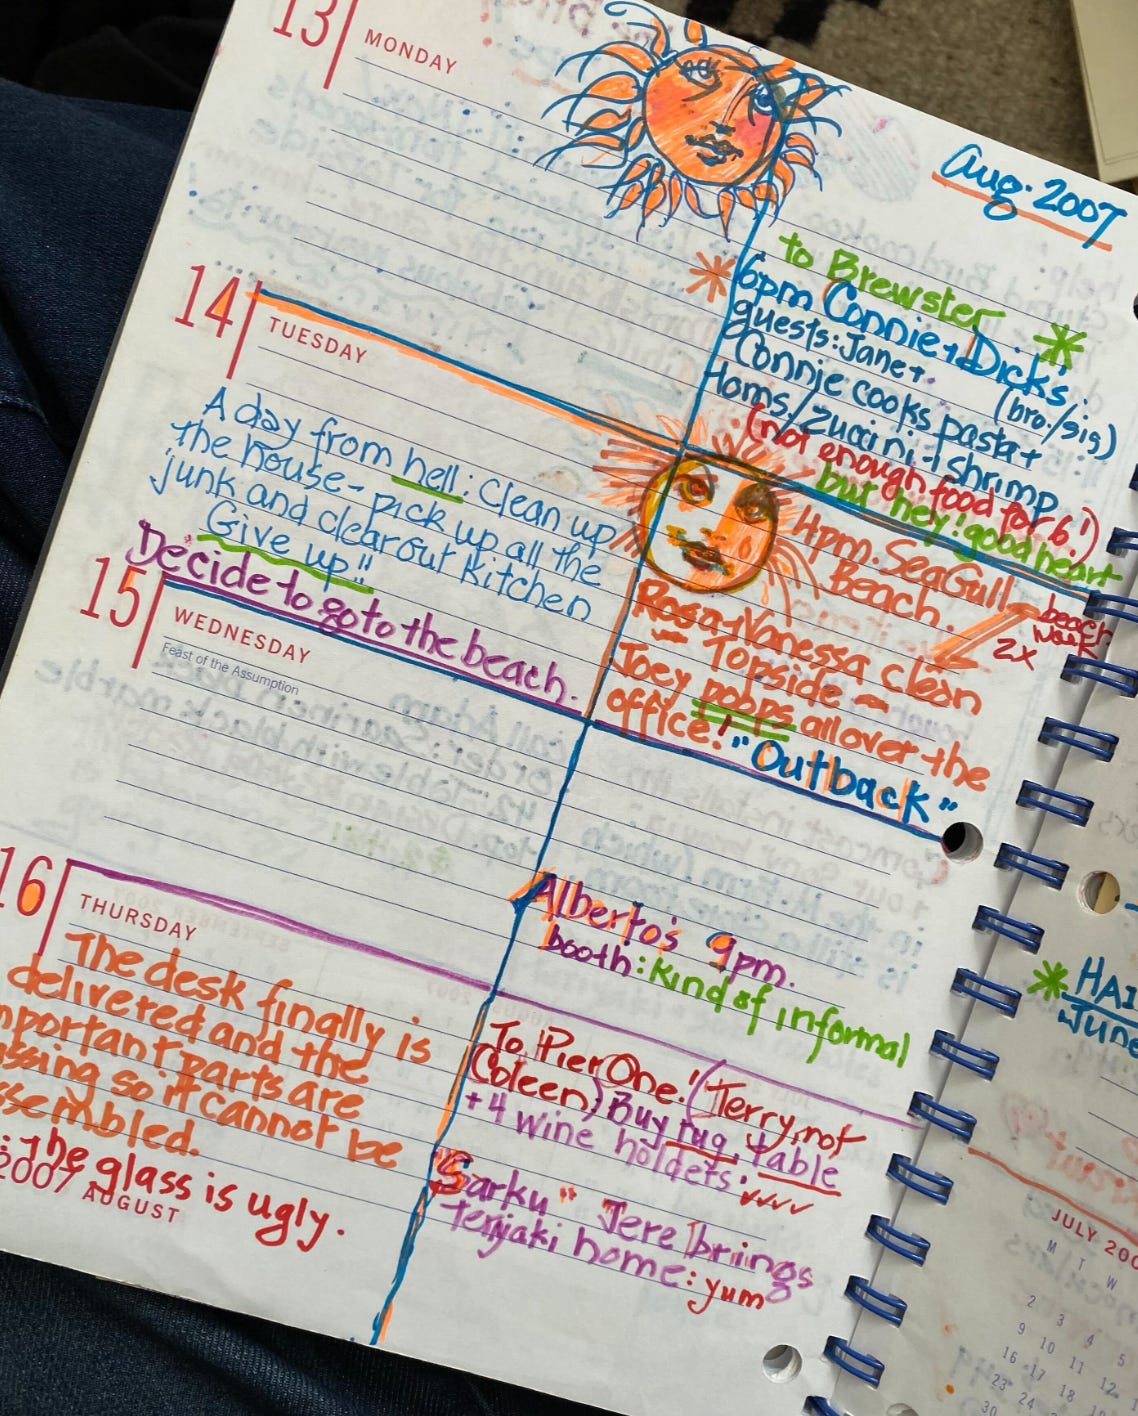 13
MONDAY
Aug. 2007
to Brewster
6pm Connie + Dick's
guests: Janet. (bro./sig)
Connie cooks pasta +
toms./zuccini + shrimp
(not enough food for 6!)
but hey! good heart
14
TUESDAY
A day from hell: Clean up
the house - pick up all the
junk and clear out kitchen
Give up!!
Decide to go to the beach.
4pm. SeaGull
Beach.
beach
walk
2X
Rosa + Vanessa clean
Topside
Joey poops all over the
office! "Outback"
15
WEDNESDAY
Feast of the Assumption
Alberto's 9pm.
booth: kind of informal
16
THURSDAY
The desk finally is
delivered and the
important parts are
missing so it cannot be
assembled.
: The glass is ugly.
2007 AUGUST
To Pier One! (Terry, not
Coleen) Buy rug, table
+ 4 wine holders:
Sarku" Jere brings
teriyaki home: yum
HAI
June
JULY 200
M T W
2 3 4 5
9 10 11 12
16 17 18
23 24
30